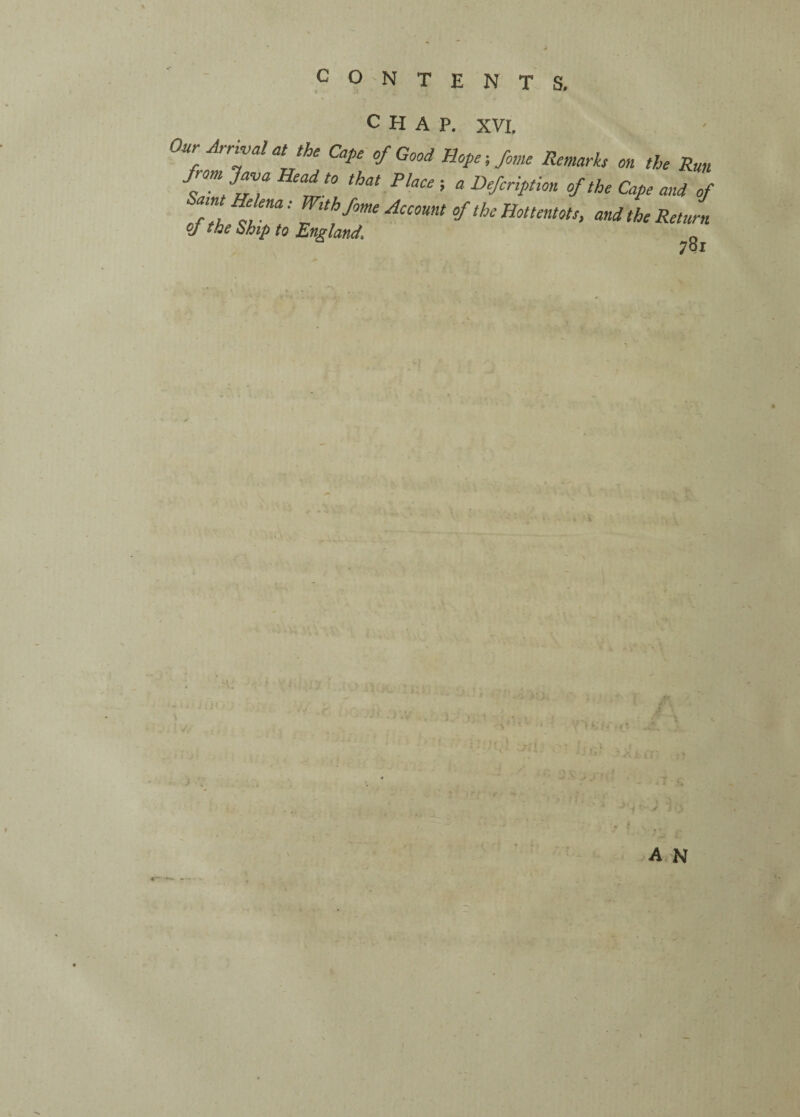 CONTENTS.
CHAP. XVI.
Our Arrival at the Cape of Good Hope; ſome Remarks on the Run
from Java Head to that Place; a Deſcription of the Cape and of
Saint Helena: With ſome Account of the Hottentots, and the Return
of the Ship to England.
781
AN